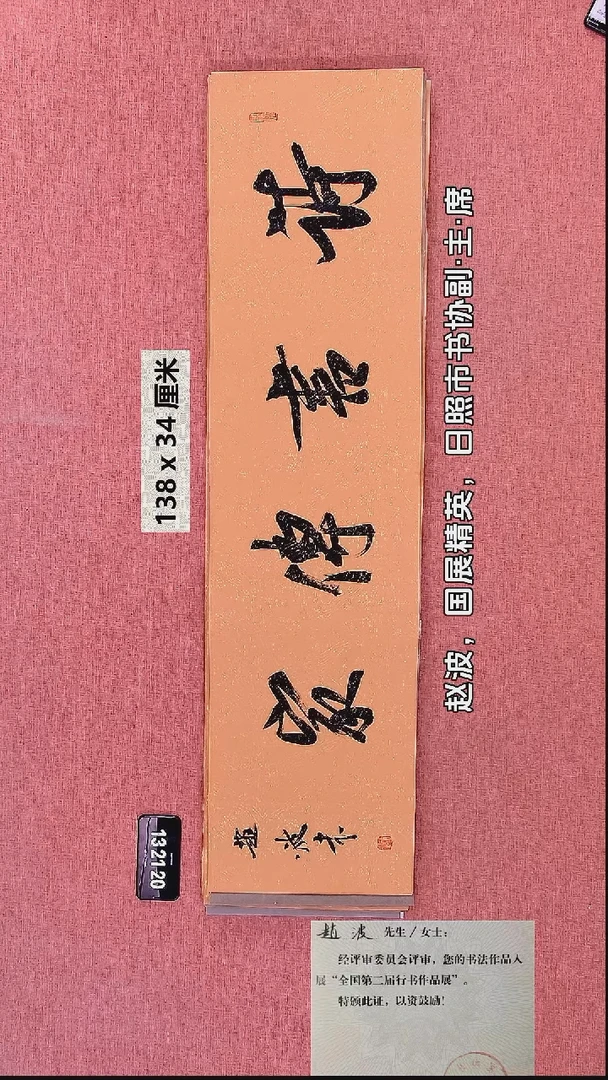 138 x 34 厘米
詩書傳家
趙波
赵波，国展精英，日照市书协副·主·席
13:21:20
趙波 先生／女士：
经评审委员会评审，您的书法作品入
展“全国第二届行书作品展”。
特颁此证，以资鼓励！